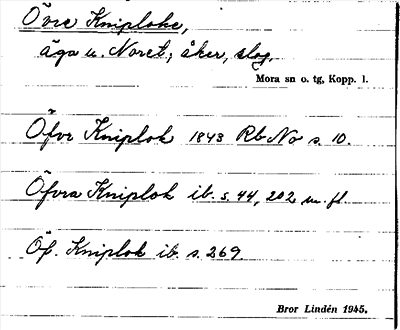 Övre Kniploke,
äga u. Noret, åker, slog.
Mora sn o. tg, Kopp. l.
Öfvr Kniplok 1843 Rb No s. 10.
Öfvra Kniplok ib. s. 44, 202 m. fl.
Öf. Kniplok ib. s. 269.
Bror Lindén 1945.